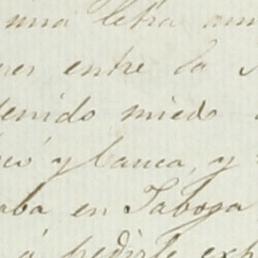 una letra
entre la
tenido miedo
y banca, y
aba en Taboga
á pedirle exp